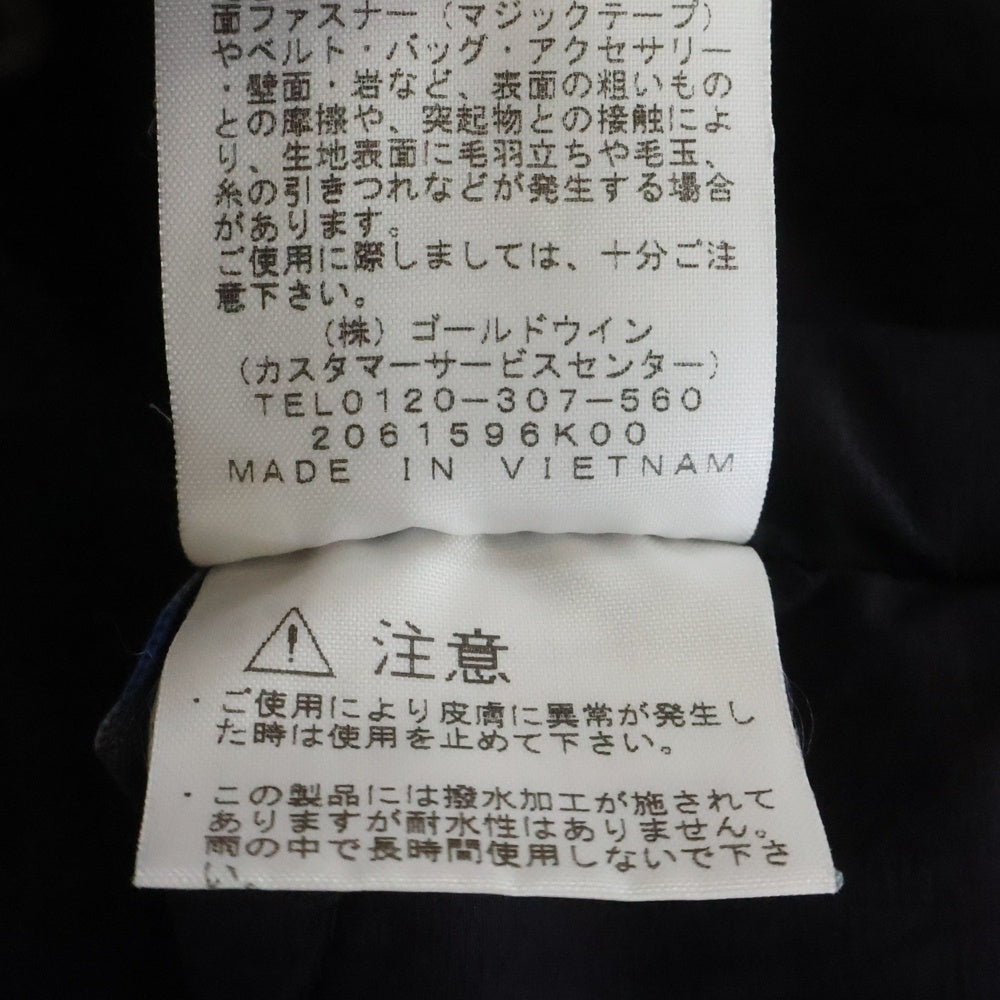 面ファスナー（マジックテープ）
やベルト・バッグ・アクセサリー
・壁面・岩など、表面の粗いもの
との摩擦や、突起物との接触によ
り、生地表面に毛羽立ちや毛玉、
糸の引きつれなどが発生する場合
があります。
ご使用に際しましては、十分ご注
意下さい。
（株）ゴールドウイン
（カスタマーサービスセンター）
TEL0120－307－560
2061596K00
MADE IN VIETNAM
注意
・ご使用により皮膚に異常が発生し
た時は使用を止めて下さい。
・この製品には撥水加工が施されて
ありますが耐水性はありません。
雨の中で長時間使用しないで下さ
い。